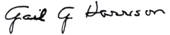 Gail G Harrison